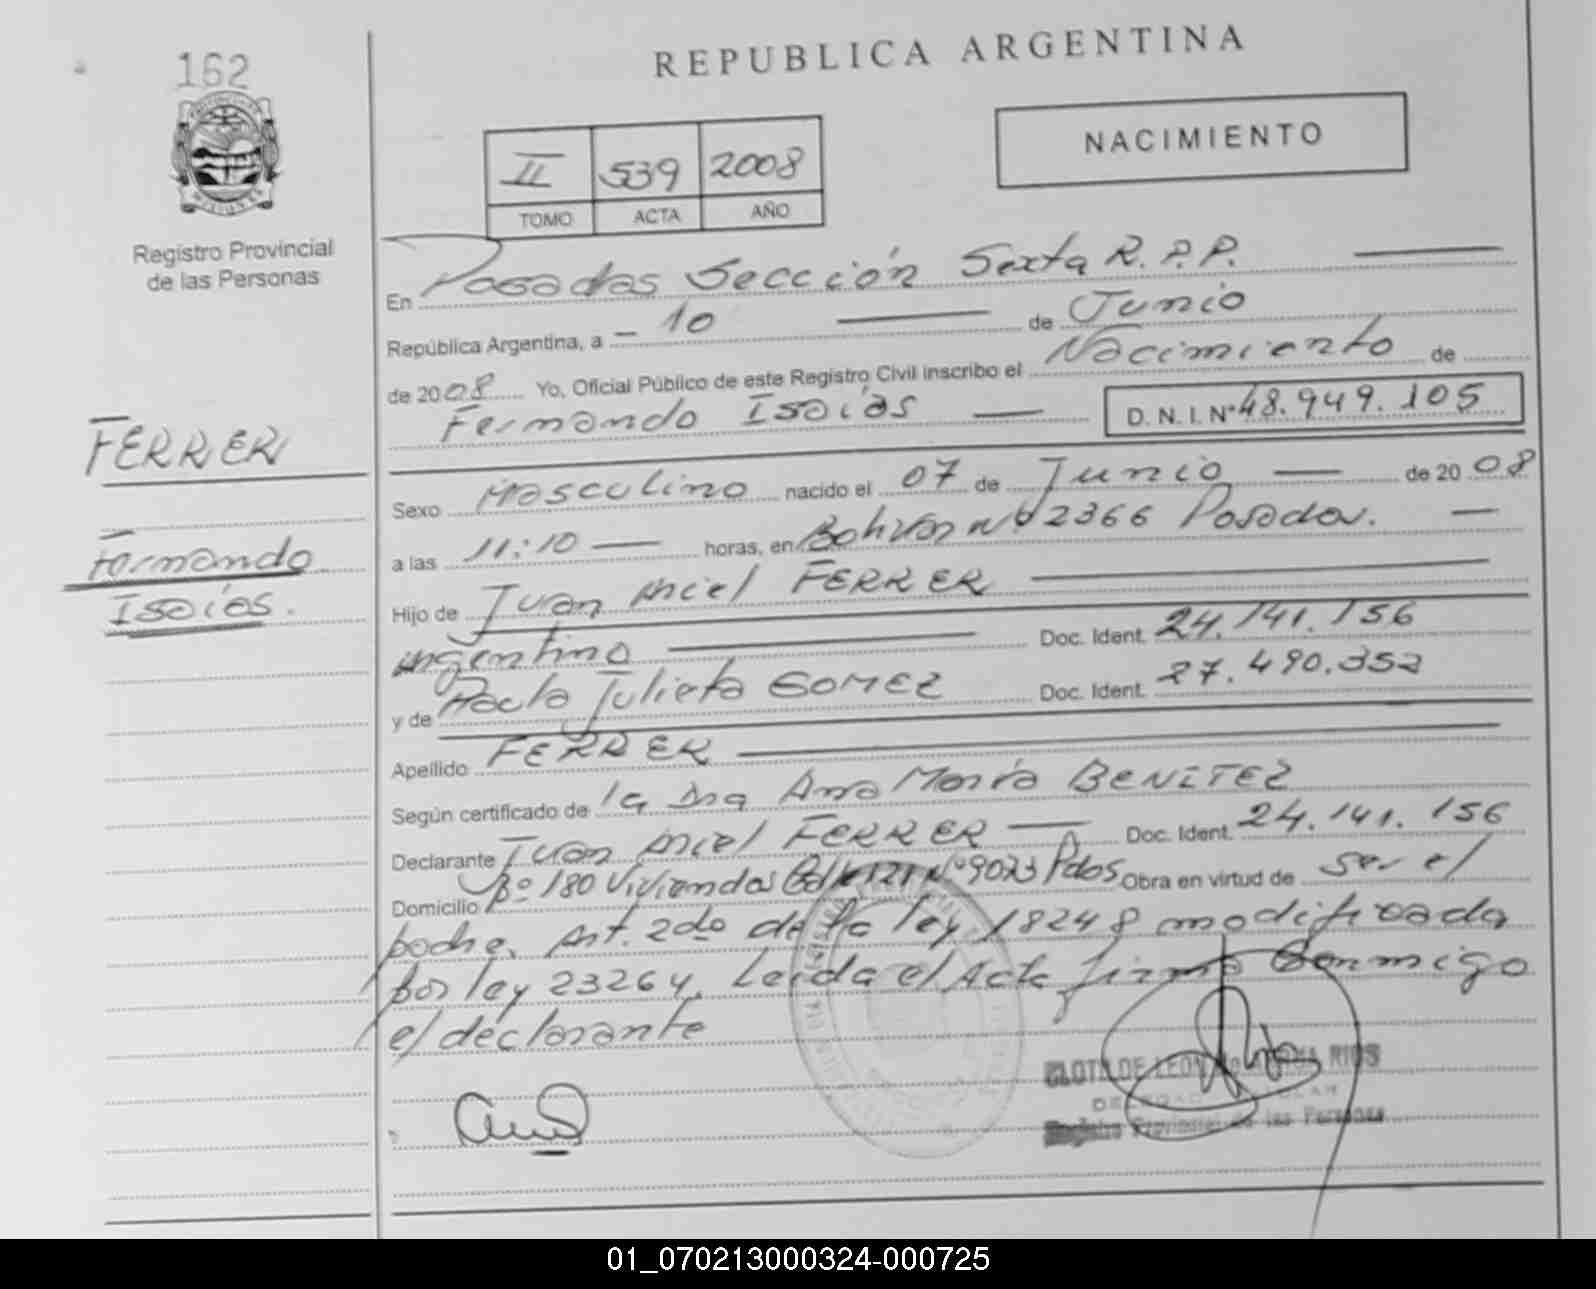 162
Registro Provincial
de las Personas
FERRER
Fernando
Isaías.
REPUBLICA ARGENTINA
NACIMIENTO
II 539 2008
TOMO ACTA AÑO
En Posadas Sección Sexta R.P.P.
República Argentina, a - 10 de Junio
de 2008 Yo, Oficial Público de este Registro Civil inscribo el Nacimiento de
Fernando Isaías D. N. I. Nº 48.949.105
Sexo Masculino nacido el 07 de Junio de 20 08
a las 11:10 horas, en Bolívar Nº 2366 Posadas.
Hijo de Juan Ariel FERRER
argentino Doc. Ident. 24.141.156
y de Julieta GOMEZ Doc. Ident. 27.490.352
Apellido FERRER
Según certificado de la Dra Ana María BENITEZ
Declarante Juan Ariel FERRER Doc. Ident. 24.141.156
Domicilio Bº 180 Viviendas Pdas Obra en virtud de ser el
padre. Art. 2do de la ley 18248 modificada
por ley 23264. Leída el Acta firma conmigo
el declarante
RIOS
Registro Provincial de las Personas
01_070213000324-000725